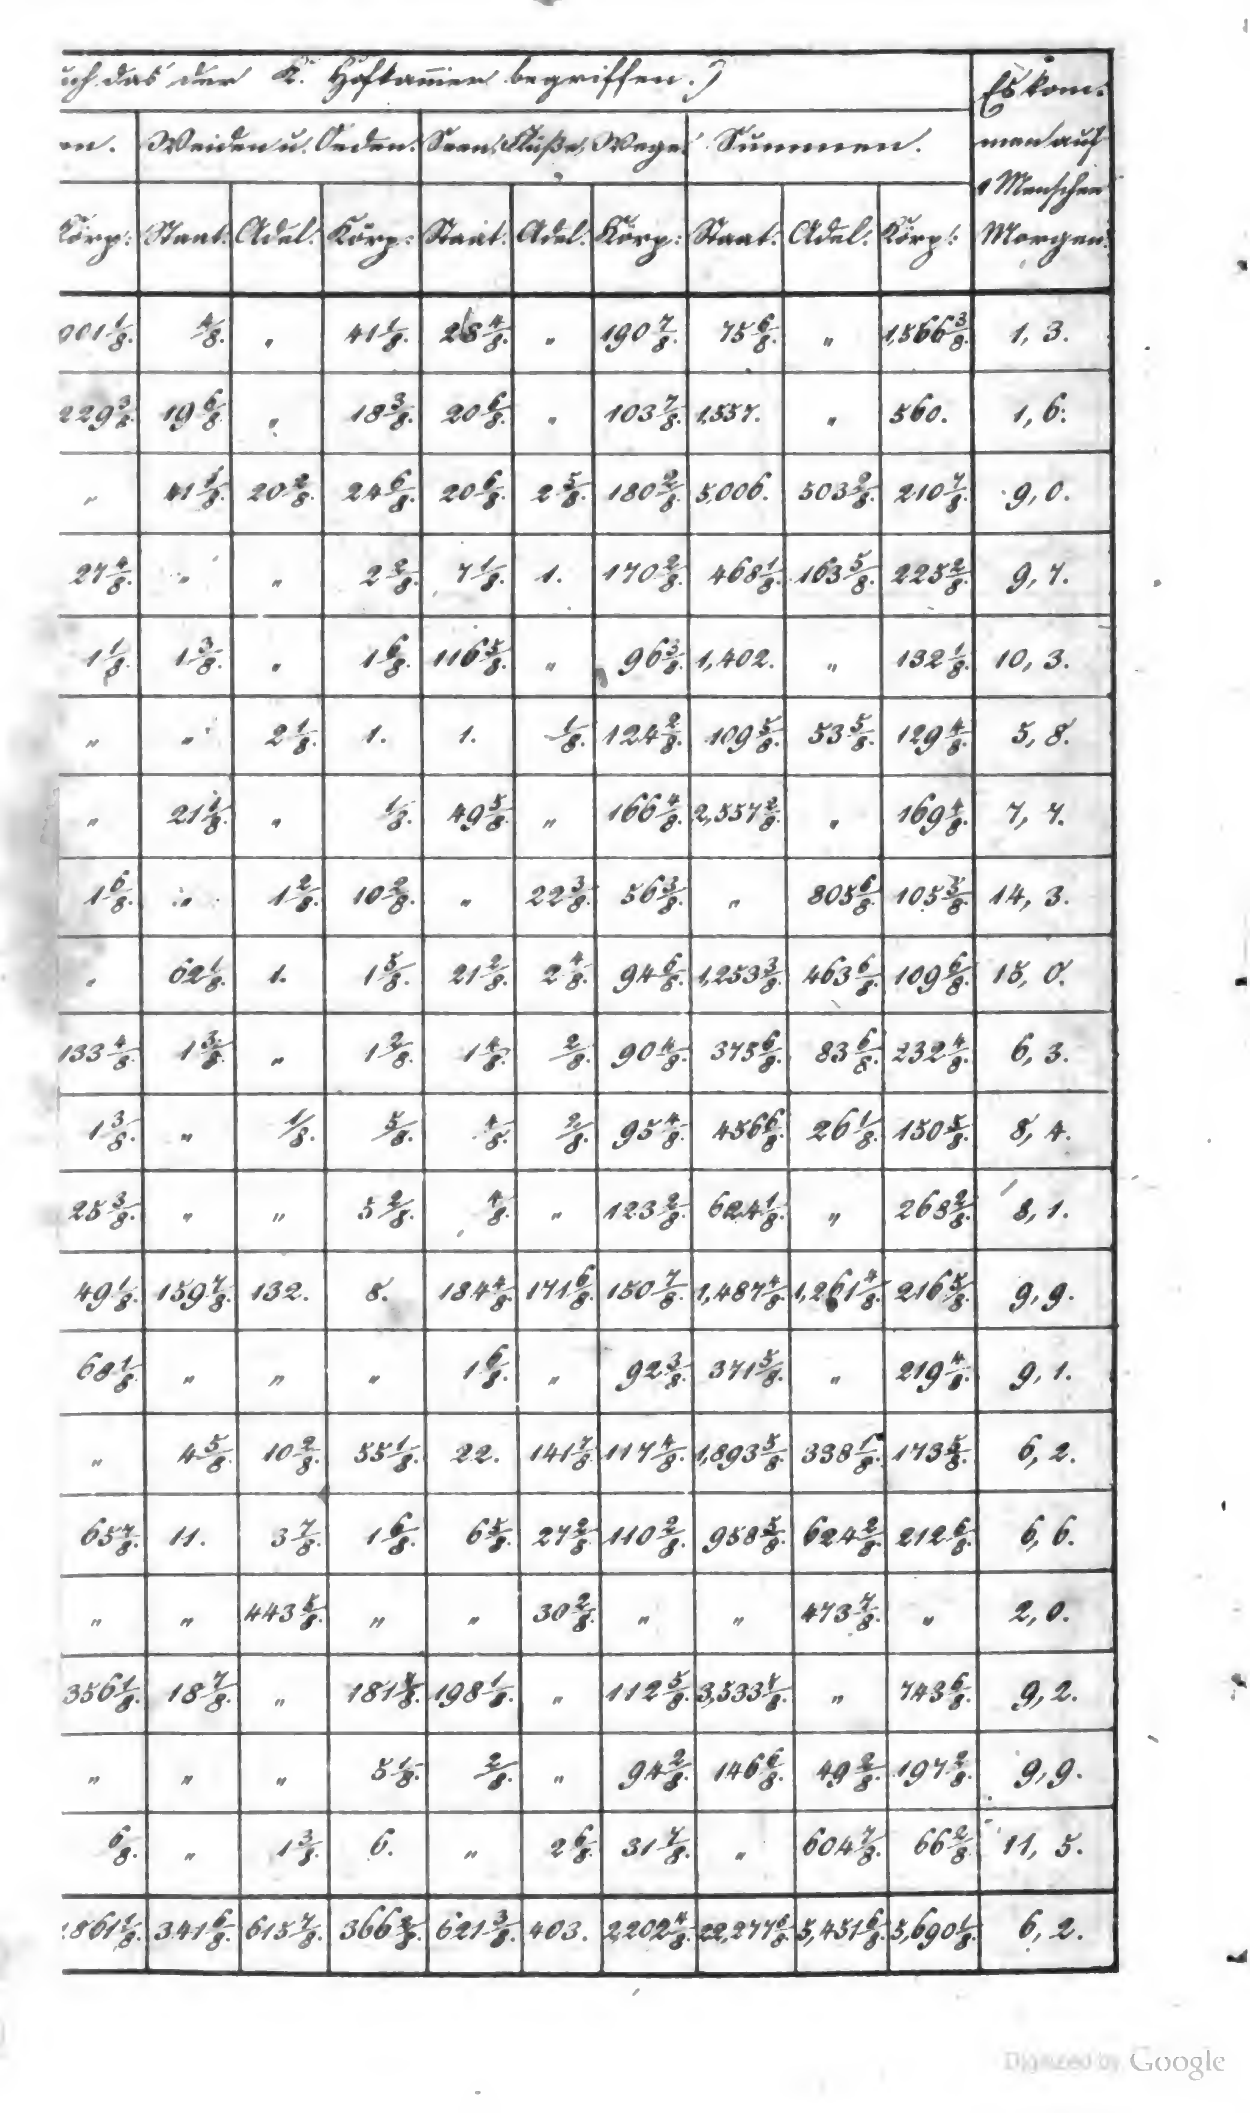 das der K. Hofkam̄er begriffen.)
Es kom-
en. Weiden u. Oeden. Seen, Flüße, Wege. Summen.
men auf
1 Menschen
Körp: Staat: Adel: Körp: Staat: Adel: Körp: Staat: Adel: Körp: Morgen:
901 1/8. 4/8. „ 41 1/8. 4/8. „ 190 7/8. 75 6/8. „ 1,566 3/8. 1, 3.
229 3/8. 19 6/8. „ 18 3/8. 20 6/8. „ 103 7/8. 1,557. „ 560. 1, 6.
„ 41 1/8. 20 2/8. 24 6/8. 20 6/8. 2 5/8. 180 2/8. 5,006. 503 2/8. 210 7/8. 9, 0.
27 4/8. „ „ 2 2/8. 7 1/8. 1. 170 2/8. 468 1/8. 163 5/8. 225 2/8. 9, 7.
1 1/8. 1 3/8. „ 1 6/8. 116 5/8. „ 96 3/8. 1,402. „ 132 1/8. 10, 3.
„ „ 2 1/8. 1. 1. 1/8. 124 2/8. 109 5/8. 53 5/8. 129 4/8. 5, 8.
„ 21 1/8. „ 1/8. 49 5/8. „ 166 4/8. 2,557 2/8. „ 169 4/8. 7, 7.
1 6/8. „ 1 2/8. 10 2/8. „ 22 3/8. 56 3/8. „ 805 6/8. 105 3/8. 14, 3.
„ 62 1/8. 1. 1 5/8. 21 2/8. 2 4/8. 94 6/8. 1,253 3/8. 463 6/8. 109 6/8. 15, 0.
133 4/8. 1 3/8. „ 1 2/8. 1 4/8. 2/8. 90 4/8. 375 6/8. 83 6/8. 232 4/8. 6, 3.
1 3/8. „ 1/8. 5/8. 4/8. 2/8. 95 4/8. 456 6/8. 26 1/8. 150 5/8. 8, 4.
25 3/8. „ „ 5 2/8. 4/8. „ 123 2/8. 624 1/8. „ 268 2/8. 8, 1.
49 1/8. 159 7/8. 132. 8. 184 4/8. 171 6/8. 150 7/8. 1,487 4/8. 1,261 4/8. 216 5/8. 9, 9.
68 1/8. „ „ „ 1 6/8. „ 92 3/8. 371 5/8. „ 219 4/8. 9, 1.
„ 4 5/8. 10 2/8. 55 1/8. 22. 141 7/8. 117 4/8. 1,893 5/8. 338 1/8. 173 5/8. 6, 2.
65 7/8. 11. 3 7/8. 1 6/8. 6 5/8. 27 2/8. 110 2/8. 958 5/8. 624 2/8. 212 6/8. 6, 6.
„ „ 443 5/8. „ „ 30 2/8. „ „ 473 7/8. „ 2, 0.
356 1/8. 18 7/8. „ 198 1/8. „ 112 5/8. „ 743 6/8. 9, 2.
„ „ „ 5 1/8. 2/8. „ 94 2/8. 146 6/8. 49 2/8. 197 2/8. 9, 9.
6/8. „ 1 3/8. 6. „ 2 6/8. 31 7/8. „ 604 7/8. 66 2/8. 11, 5.
341 6/8. 615 7/8. 621 3/8. 403. 2,202 4/8. 22,277 6/8. 5,451 6/8. 5,690 1/8. 6, 2.
Digitized by Google